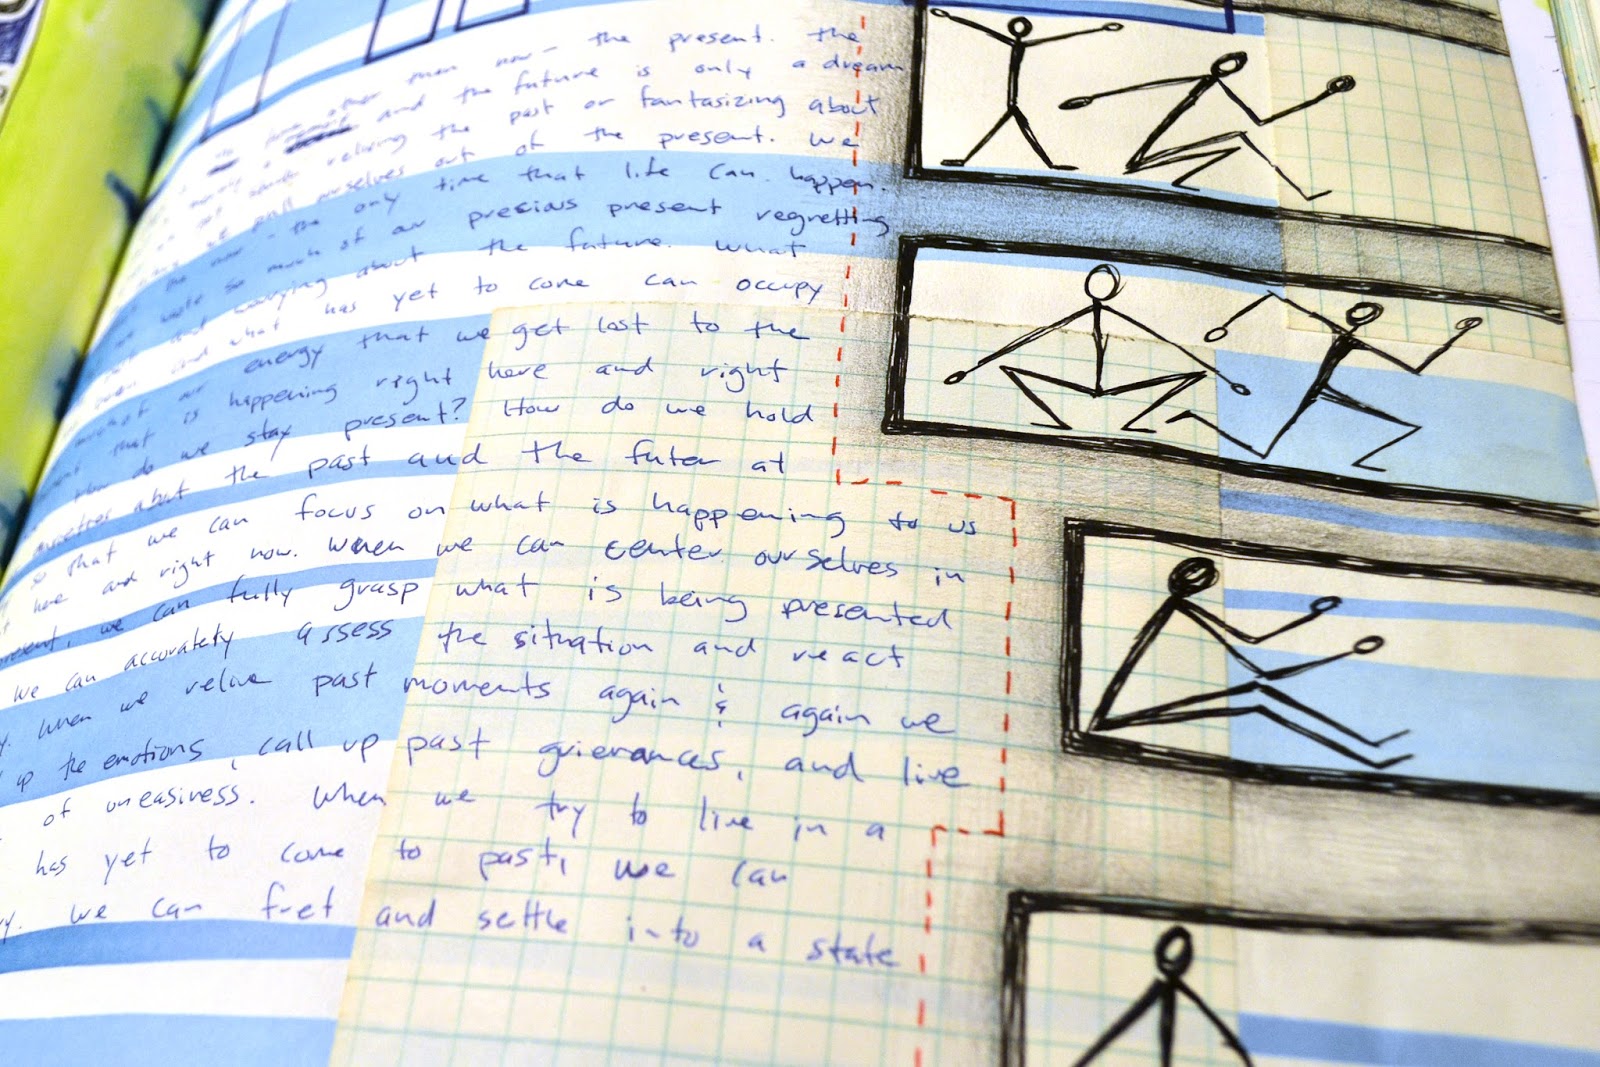 other than now - the present. the
and the future is only a dream
reliving the past or fantasizing about
we pull ourselves out of the present. we
the now - the only time that life can happen.
waste so much of our presious present regretting
and worrying about the future. what
and what has yet to come can occupy
much of our energy that we get lost to the
that is happening right here and right
How do we stay present? How do we hold
about the past and the futer at
so that we can focus on what is happening to us
here and right now. When we can center ourselves in
present, we can fully grasp what is being presented
we can accurately assess the situation and react
When we relive past moments again & again we
up the emotions, call up past grievances, and live
of uneasiness. When we try to live in a
has yet to come to past, we can
we can fret and settle into a state